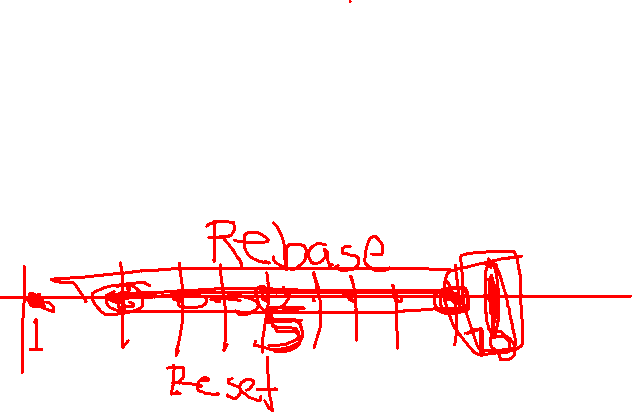 Rebase
1
5
Reset